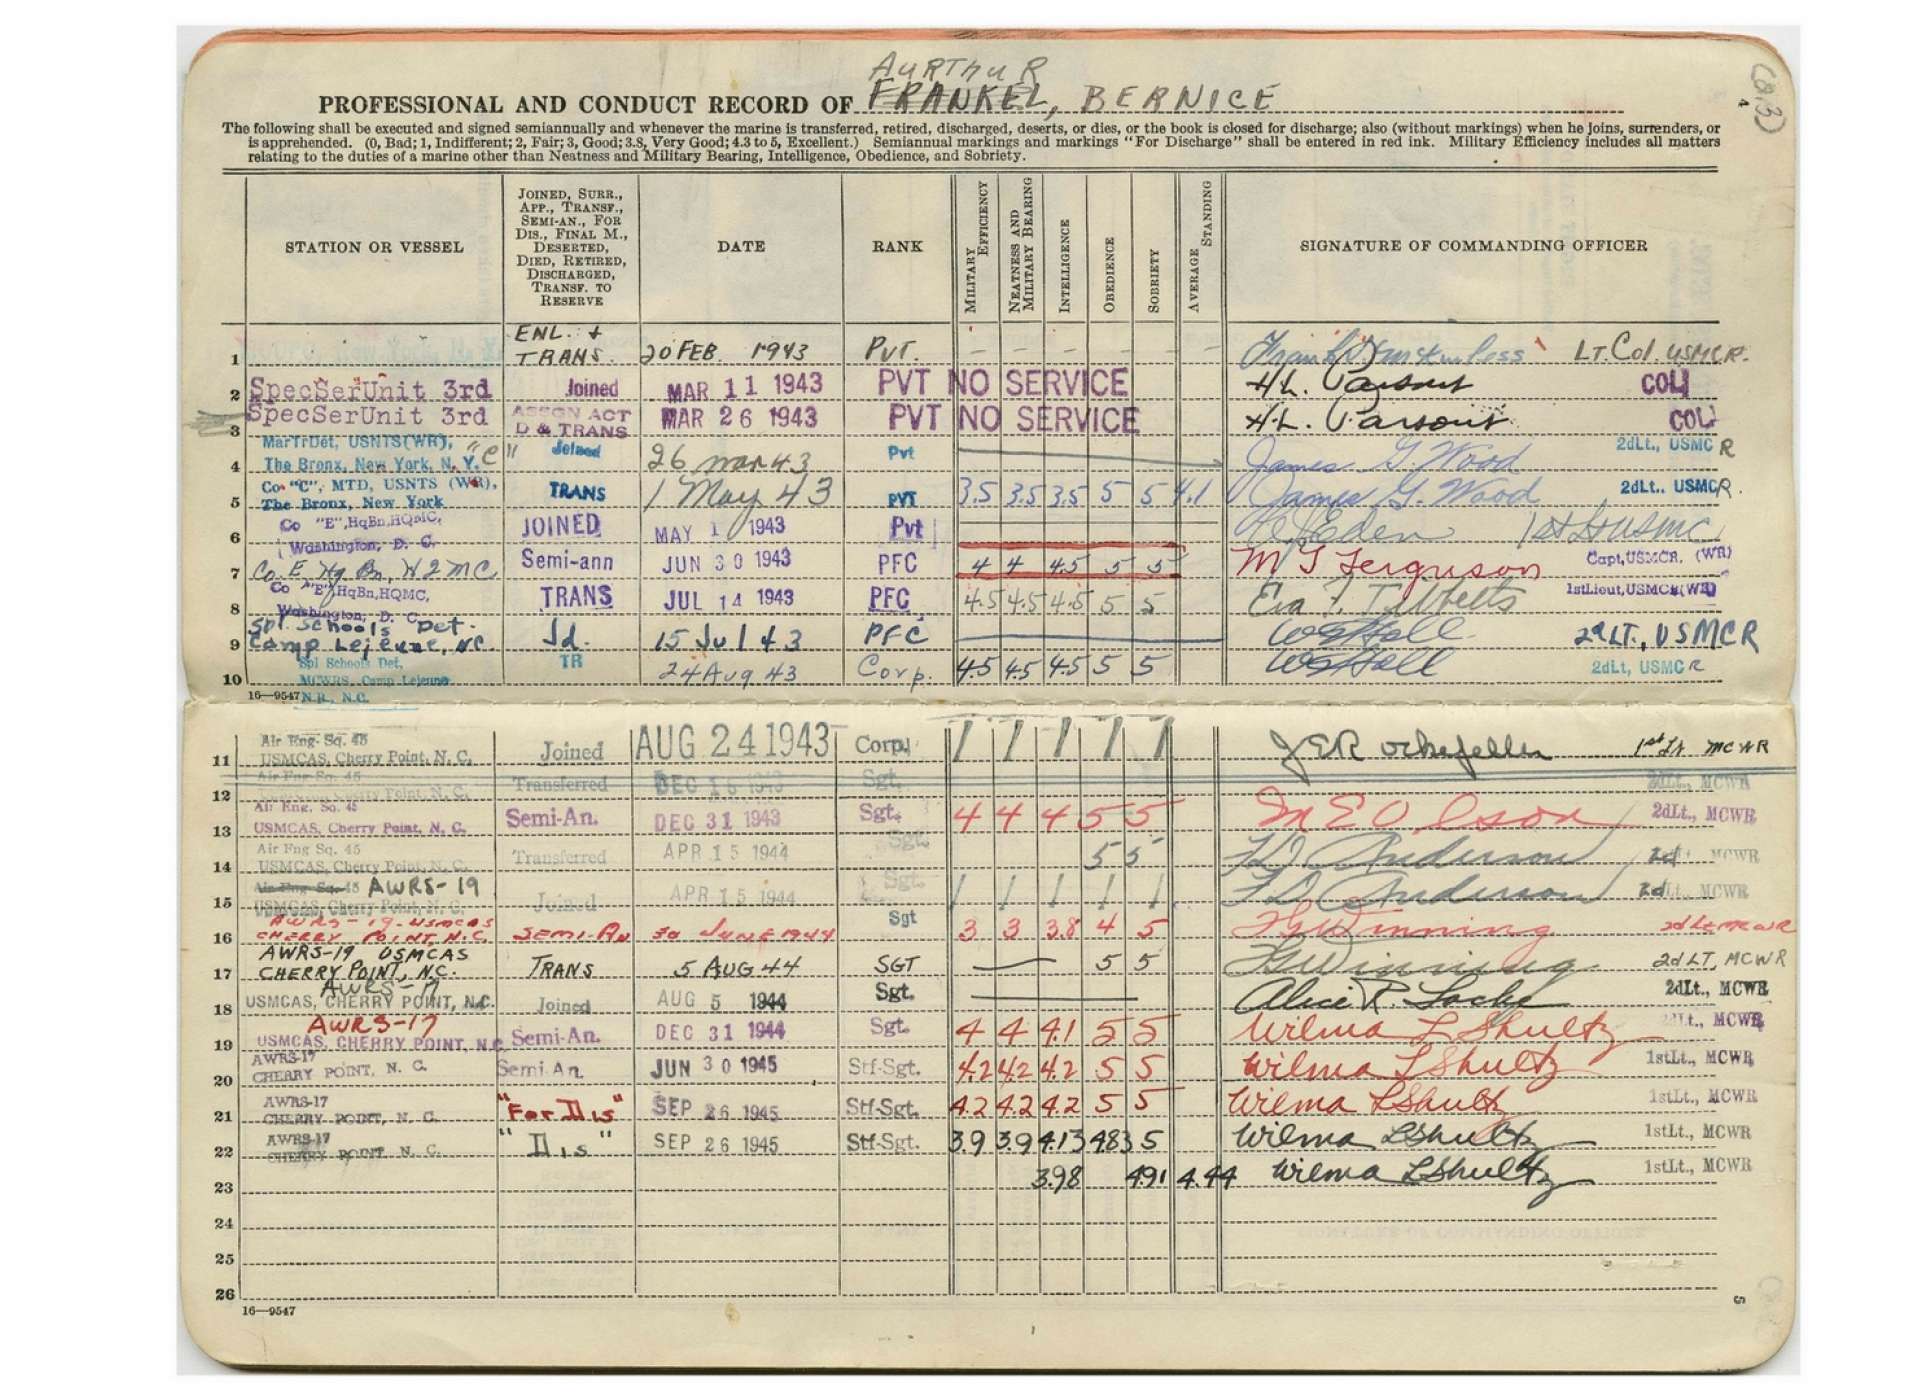 AURTHUR
PROFESSIONAL AND CONDUCT RECORD OF FRANKEL, BERNICE
The following shall be executed and signed semiannually and whenever the marine is transferred, retired, discharged, deserts, or dies, or the book is closed for discharge; also (without markings) when he joins, surrenders, or
is apprehended. (0, Bad; 1, Indifferent; 2, Fair; 3, Good; 3.8, Very Good; 4.3 to 5, Excellent.) Semiannual markings and markings "For Discharge" shall be entered in red ink. Military Efficiency includes all matters
relating to the duties of a marine other than Neatness and Military Bearing, Intelligence, Obedience, and Sobriety.
4
STATION OR VESSEL
JOINED, SURR., APP., TRANSF., SEMI-AN., FOR DIS., FINAL M., DESERTED, DIED, RETIRED, DISCHARGED, TRANSF. TO RESERVE
DATE
RANK
MILITARY EFFICIENCY
NEATNESS AND MILITARY BEARING
INTELLIGENCE
OBEDIENCE
SOBRIETY
AVERAGE STANDING
SIGNATURE OF COMMANDING OFFICER
1 ENL. + TRANS. 20 FEB. 1943 PVT. – – – – – – LT. COL. USMCR.
2 SpecSerUnit 3rd Joined MAR 11 1943 PVT NO SERVICE H.L. Parsons COL
3 SpecSerUnit 3rd ASSGN ACT D & TRANS MAR 26 1943 PVT NO SERVICE H.L. Parsons COL
4 MarTrDet, USNTS(WR), "C" The Bronx, New York, N.Y. Joined 26 mar 43 Pvt James G. Wood 2dLt., USMC R
5 Co "C", MTD, USNTS (WR), The Bronx, New York TRANS 1 May 43 PVT 3.5 3.5 3.5 5 5 4.1 James G. Wood 2dLt., USMCR.
6 Co "E", HqBn, HQMC, Washington, D. C. JOINED MAY 1 1943 Pvt Eden 1st Lt USMC
7 Co. E Hq Bn, HQMC Semi-ann JUN 30 1943 PFC 4 4 4.5 5 5 M J Ferguson Capt, USMCR. (WR)
8 Co "E", HqBn, HQMC, Washington, D. C. TRANS JUL 14 1943 PFC 4.5 4.5 4.5 5 5 Eva T. Tibbetts 1stLieut, USMCR(WR)
9 Spl. Schools Det. Camp Lejeune, N.C. Jd. 15 Jul 43 PFC WSHall 2d LT., USMCR
10 Spl Schools Det, MCWRS, Camp Lejeune N.R., N.C. TR 24 Aug 43 Corp. 4.5 4.5 4.5 5 5 WSHall 2dLt, USMC R
16—9547
11 Air Eng. Sq. 45 USMCAS, Cherry Point, N. C. Joined AUG 24 1943 Corp. / / / / / J E Rockefeller 1st Lt MCWR
12 Air Eng Sq. 45 USMCAS, Cherry Point, N. C. Transferred DEC 16 1943 Sgt. 2dLt., MCWR
13 Air Eng. Sq. 45 USMCAS, Cherry Point, N. C. Semi-An. DEC 31 1943 Sgt. 4 4 4 5 5 M E Olson 2dLt., MCWR
14 Air Eng Sq. 45 USMCAS, Cherry Point, N. C. Transferred APR 15 1944 Sgt. 5 5 Anderson 2d Lt., MCWR
15 Air Eng. Sq. 45 AWRS-19 USMCAS, Cherry Point, N. C. Joined APR 15 1944 Sgt. / / / / / Anderson 2d Lt., MCWR
16 AWRS-19-USMCAS CHERRY POINT, N.C. SEMI-AN 30 JUNE 1944 Sgt 3 3 3.8 4 5 Winning 2d Lt MCWR
17 AWRS-19 USMCAS CHERRY POINT, N.C. TRANS 5 AUG 44 SGT 5 5 Winning 2d LT, MCWR
18 AWRS-17 USMCAS, CHERRY POINT, N.C. Joined AUG 5 1944 Sgt. Alice R. Locke 2dLt., MCWR
19 AWRS-17 USMCAS, CHERRY POINT, N.C. Semi-An. DEC 31 1944 Sgt. 4 4 4.1 5 5 Wilma L Shultz 2dLt., MCWR
20 AWRS-17 CHERRY POINT, N. C. Semi.An. JUN 30 1945 Stf-Sgt. 4.2 4.2 4.2 5 5 Wilma L Shultz 1stLt., MCWR
21 AWRS-17 CHERRY POINT, N. C. "For Dis" SEP 26 1945 Stf-Sgt. 4.2 4.2 4.2 5 5 Wilma L Shultz 1stLt., MCWR
22 AWRS-17 CHERRY POINT, N. C. "Dis" SEP 26 1945 Stf-Sgt. 3.9 3.9 4.13 4.83 5 Wilma L Shultz 1stLt., MCWR
23 3.98 4.91 4.44 Wilma L Shultz 1stLt., MCWR
24
25
26
16—9547
5